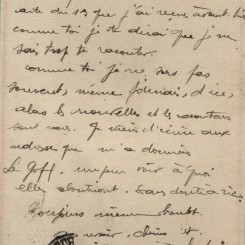 carte du 13 que j'ai reçue avant-hier
comme toi je te dirai que je ne
sais trop te raconter.
comme toi je ne sors pas
souvent, même jamais, d'ici,
alas les nouvelles et les racontars
sont rares. Je viens d'écrire aux
adresses que m'a données
Le Goff. un peu voir à quoi
elles aboutiront. Sans doute à rien
Toujours même boulot.
au revoir, chérie et